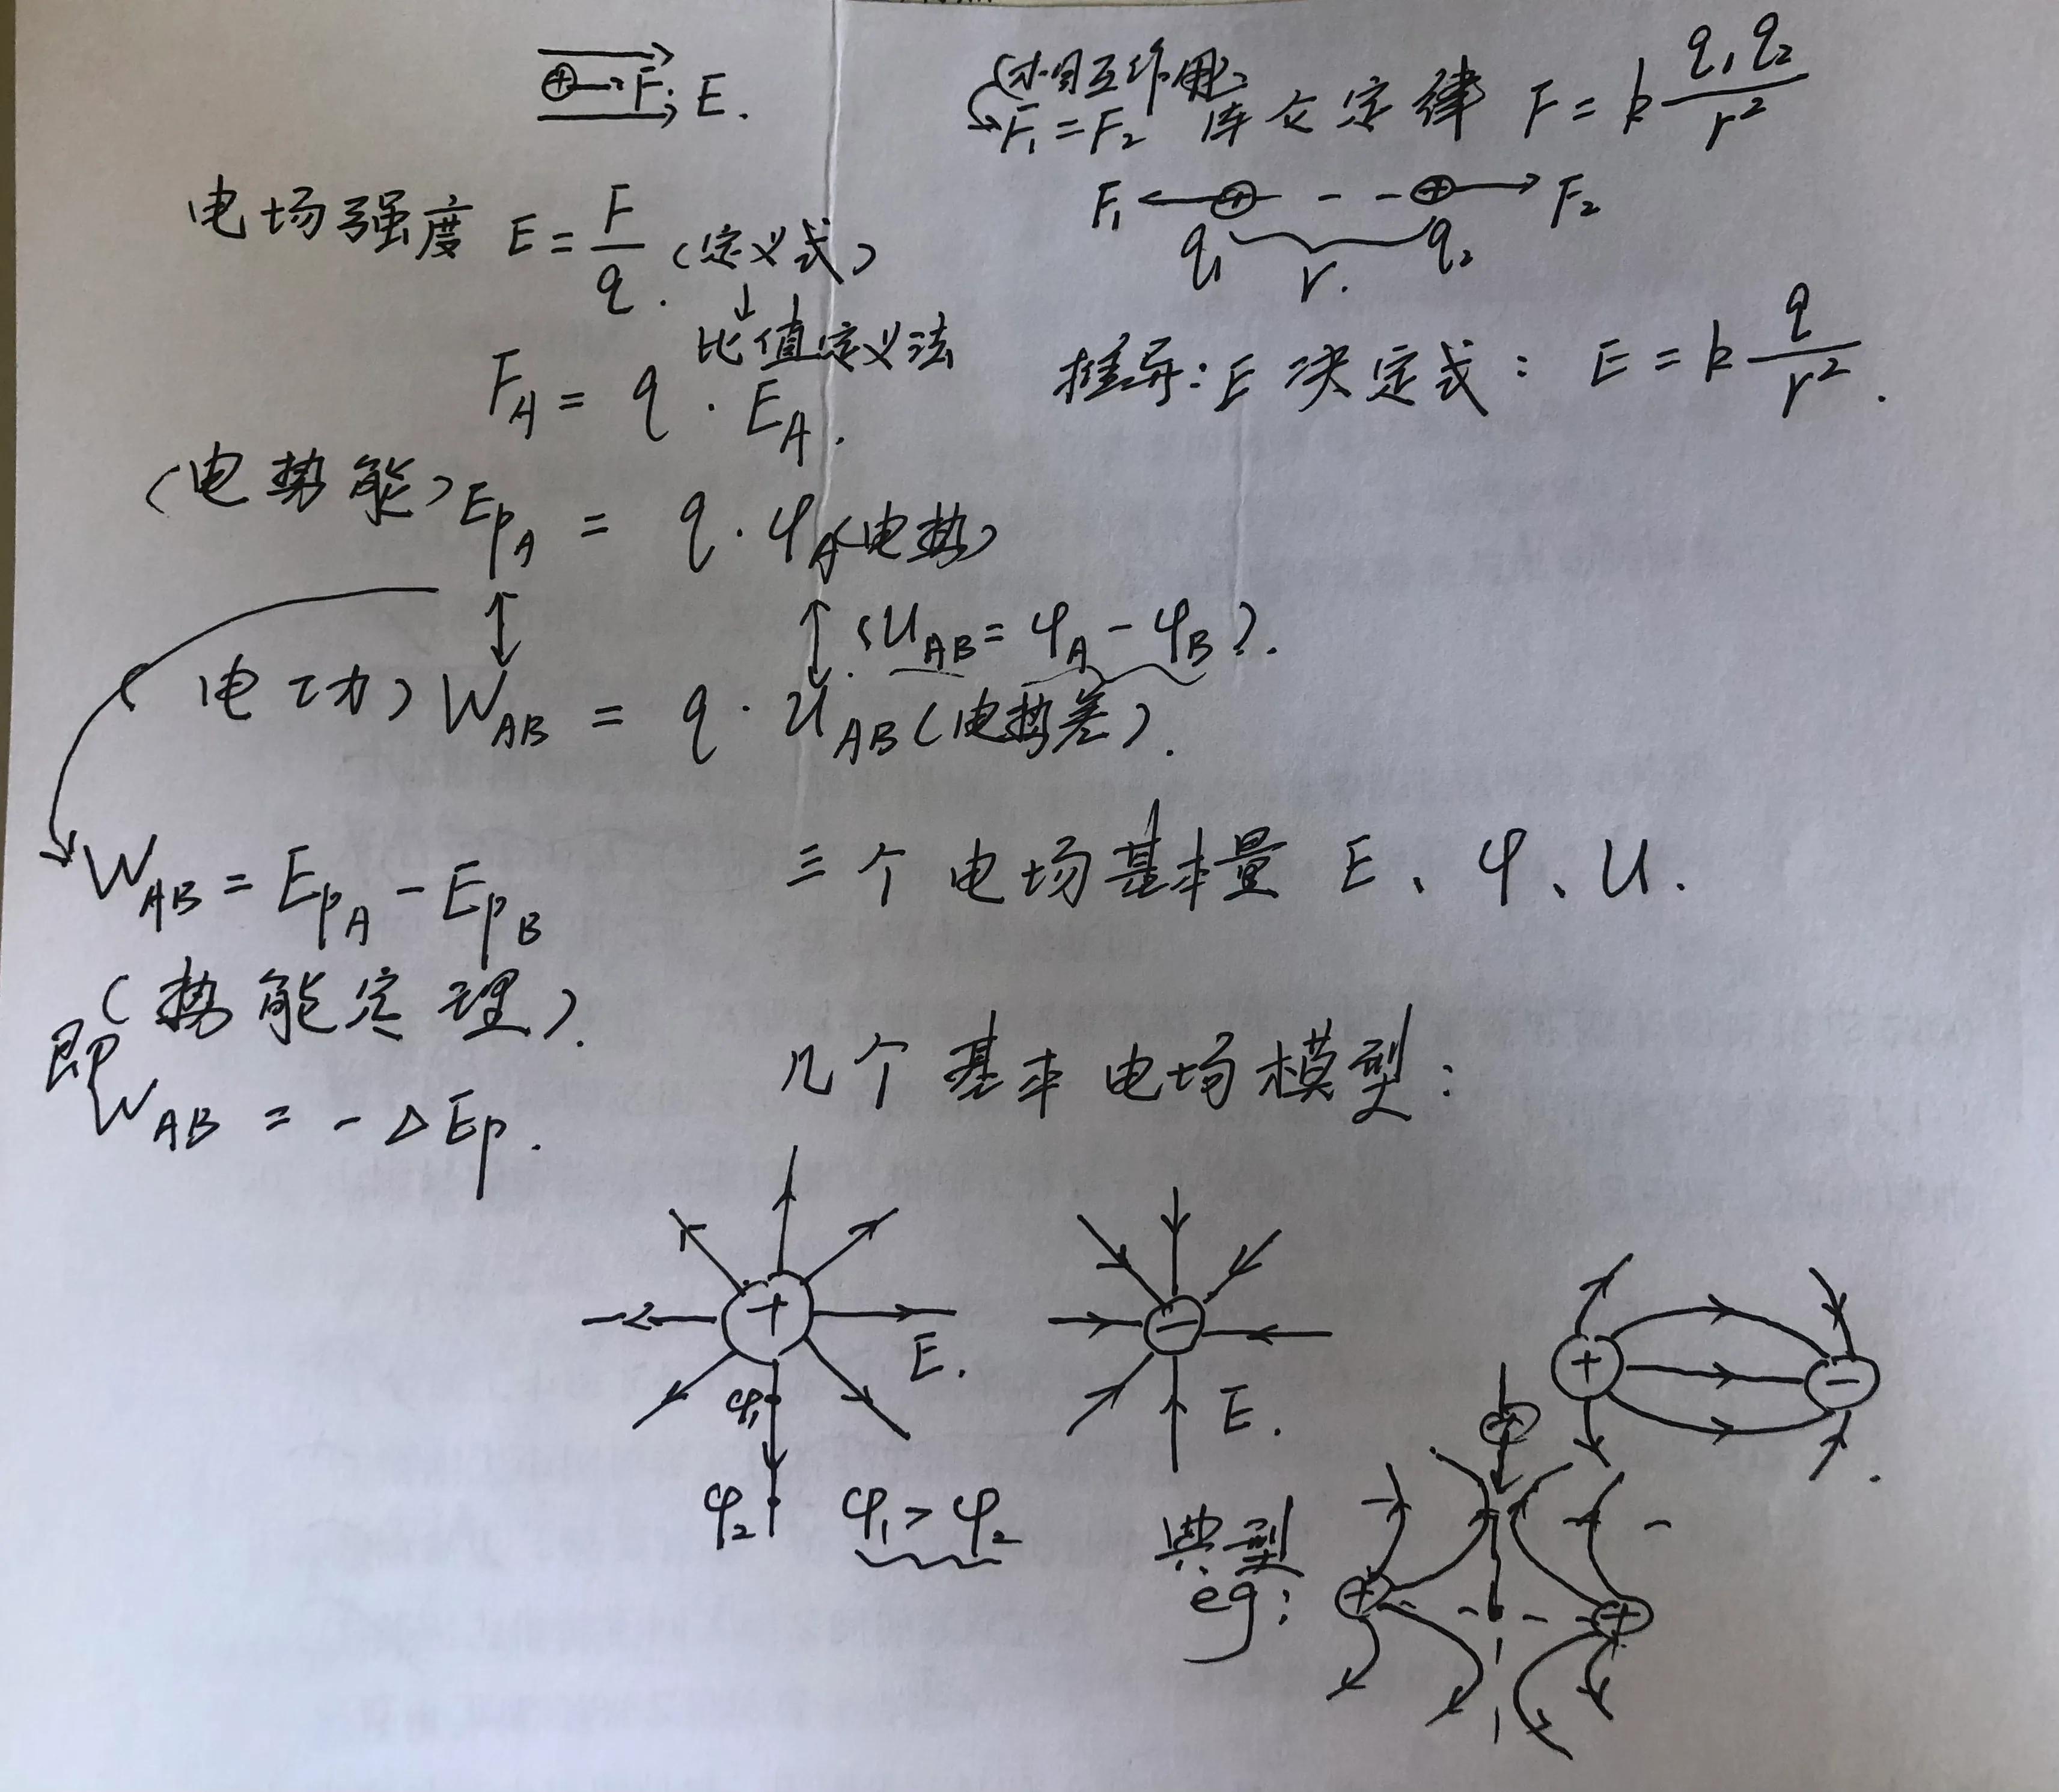 F E.
(相互作用)
F₁=F₂ 库仑定律 F=k q₁q₂/r²
F₁ F₂
q₁ r. q₂
电场强度 E=F/q. (定义式)
↓
比值定义法
F_A = q · E_A.
推导: E 决定式: E=k q/r².
(电势能) Ep_A = q · φ_A (电势)
(U_AB = φ_A - φ_B).
(电功) W_AB = q · U_AB (电势差).
W_AB = Ep_A - Ep_B
(势能定理).
即 W_AB = -ΔEp.
三个电场基本量 E、φ、U.
几个基本电场模型:
+ E.
- E.
+ -
φ₁
φ₂ φ₁>φ₂
典型
eg:
+
+ +